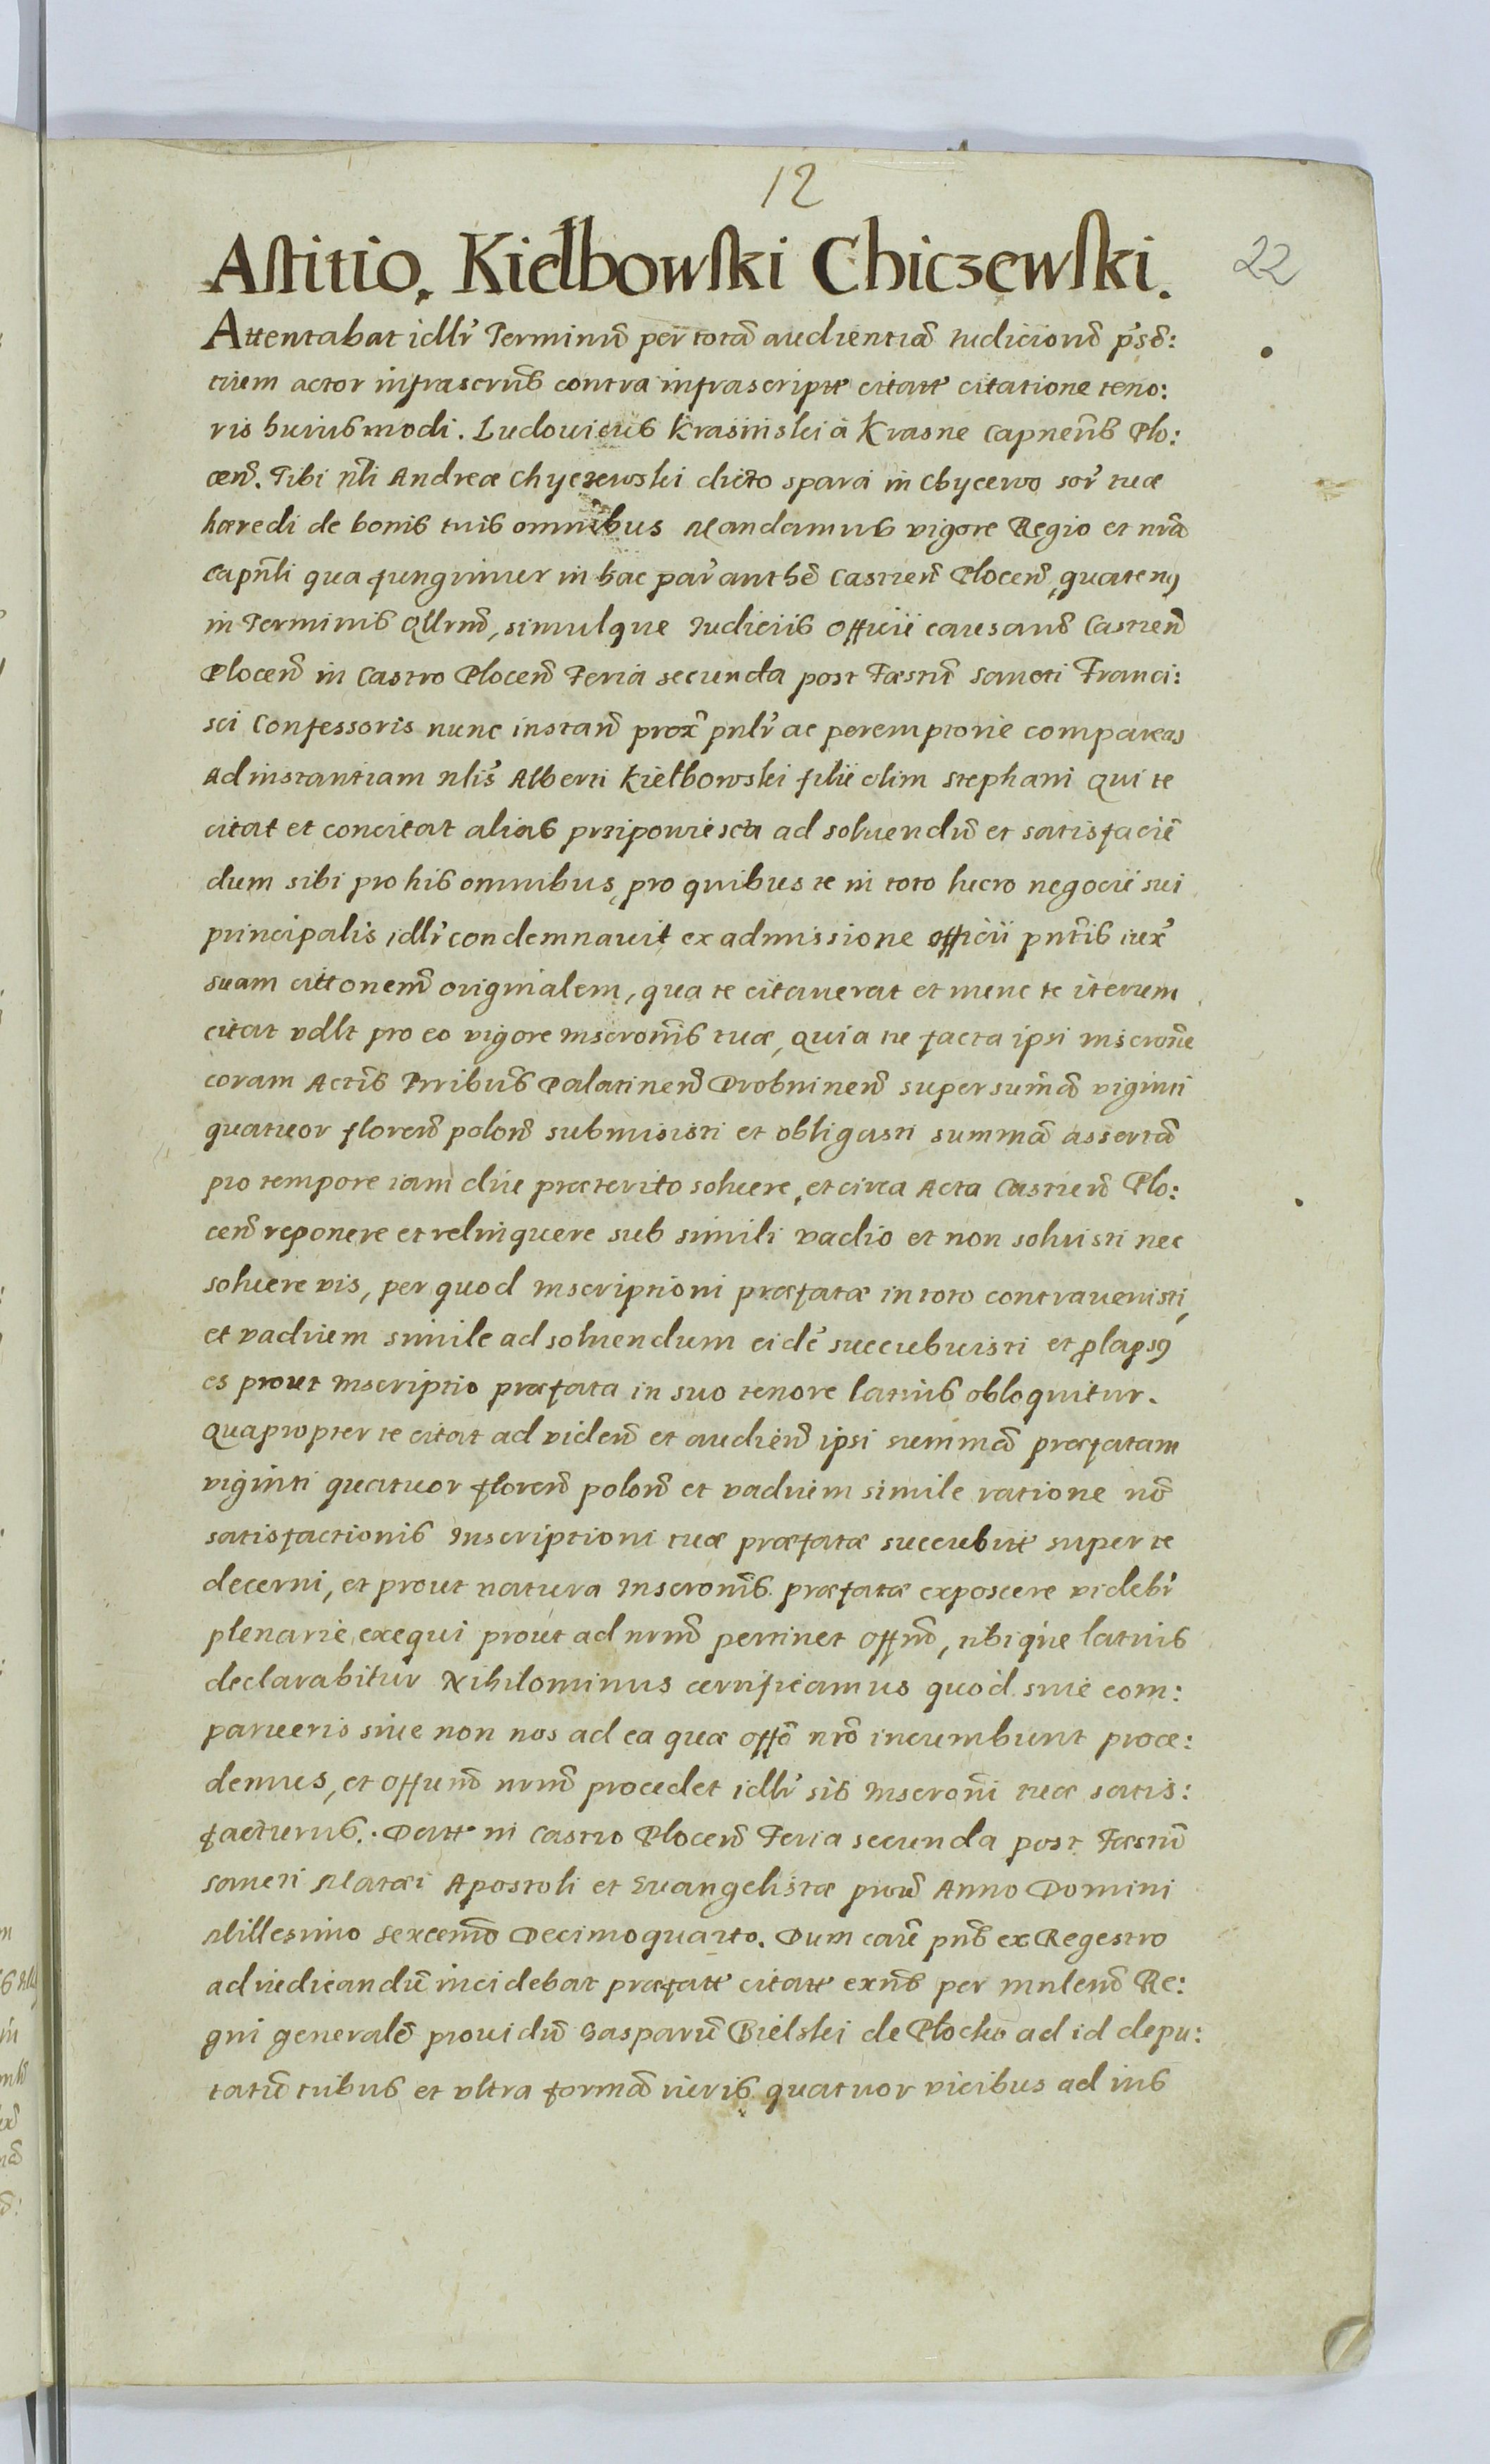 12
22
Astitio. Kiełbowski Chiczewski.
Attentabat idllr Terminũ per totã audientiã Iudiciorũ psẽ:
tium actor infrascrũs contra infrascriptt citatt citatione teno:
ris huiusmodi. Ludouicus Krasiński à Krasne Capneũs Plo:
ceñ. Tibi nli Andreæ Chyczewski dicto spara in Chycewo sor tuæ
hæredi de bonis tuis omnibus Mandamus vigore Regio et nrã
Capnli qua fungimur in hac par authẽ Castreñ Ploceñ, quatenꝰ
in Terminis Qllrũ, simulque Iudiciis Officii causarũ Castreñ
Ploceñ in Castro Ploceñ Feria secunda post Fæstũ Sancti Franci:
sci Confessoris nunc instañ prox pnlr ac peremptorie compareas
Ad instantiam nlis Alberti Kiełbowski filii olim Stephani Qui te
citat et concitat alias przipowiescia ad soluendũ et satisfaciẽ
dum sibi pro his omnibus, pro quibus te in toto lucro negocii sui
principalis idllr condemnauit ex admissione officii pntis iux
suam cittonem originalem, qua te citauerat et nunc te iterum
citat vdllt pro eo vigore inscronis tuæ, quia tu facta ipsi inscrone
coram Actis Trribus Palatineñ Drobnineñ super sum̃ã viginti
quatuor floreñ poloñ submisisti et obligasti summã assertã
pro tempore iam diu præterito soluere, et circa Acta Castreñ Plo:
ceñ reponere et relinquere sub simili vadio et non soluisti nec
soluere vis, per quod inscriptioni præfatæ in toto contrauenisti,
et vadium simile ad soluendum eidẽ succubuisti et plapsꝰ
es prout inscriptio præfata in suo tenore latius obloquitur.
Quapropter te citat ad videñ et audieñ ipsi summã præfatam
viginti quatuor floreñ poloñ et vadium simile ratione nõ
satisfactionis Inscriptioni tuæ præfatæ succubitt super te
decerni, et prout natura Inscronis præfatæ exposcere videbr
plenarie, exequi prout ad nrũ pertinet offũ, ubique latius
declarabitur Nihilominus certificamus quod siue com:
parueris siue non nos ad ea quæ offõ nrõ incumbunt proce:
demus, et offiũ nrũ procedet idllr sis Inscroni tuæ satis:
facturus. Datt in Castro Ploceñ Feria secunda post Fæstũ
Sancti Matæi Apostoli et Euangelistæ proxi Anno Domini
Millesimo Sexcemõ Decimoquarto. Dum caũ pns ex Regestro
ad iudicandũ incidebat præfatt citatt exñs per mnleñ Re:
gni generalẽ prouidũ Gasparũ Bielski de Płocko ad id depu:
tatũ tribus et vltra formã iuris quatuor vicibus ad ius